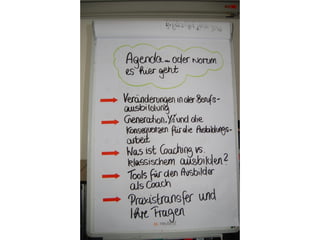 Agenda – oder worum
es hier geht
Veränderungen in der Berufs-
ausbildung
Generation Y und die
Konsequenzen für die Ausbildungs-
arbeit
Was ist Coaching vs.
klassischem ausbilden?
Tools für den Ausbilder
als Coach
Praxistransfer und
Ihre Fragen